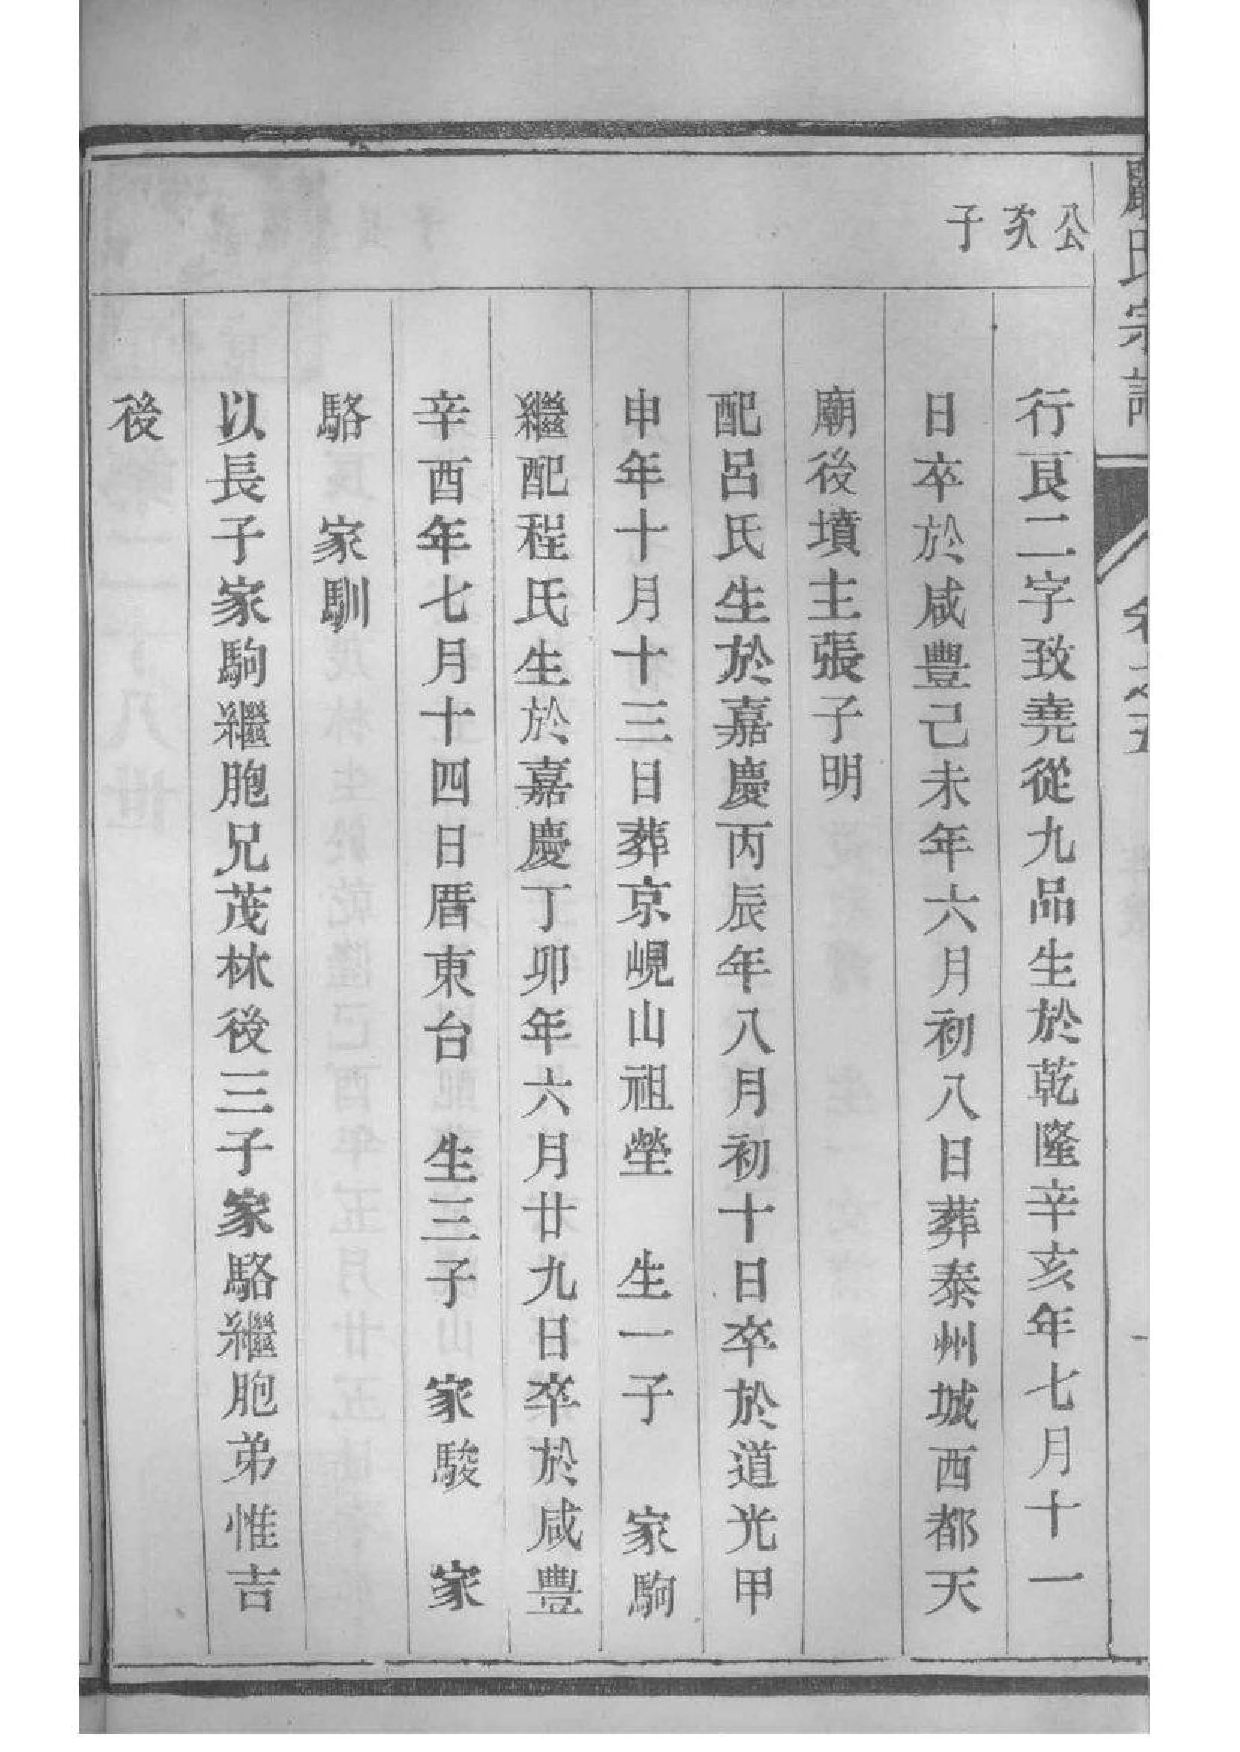 氏宗
卷之五
公次子
行艮二字致堯從九品生於乾隆辛亥年七月十一
日卒於咸豐己未年六月初八日葬泰州城西都天
廟後墳主張子明
配呂氏生於嘉慶丙辰年八月初十日卒於道光甲
申年十月十三日葬京峴山祖塋　生一子　家駒
繼配程氏生於嘉慶丁卯年六月廿九日卒於咸豐
辛酉年七月十四日厝東台　生三子　家駿　家
駱　家馴
以長子家駒繼胞兄茂林後三子家駱繼胞弟惟吉
後